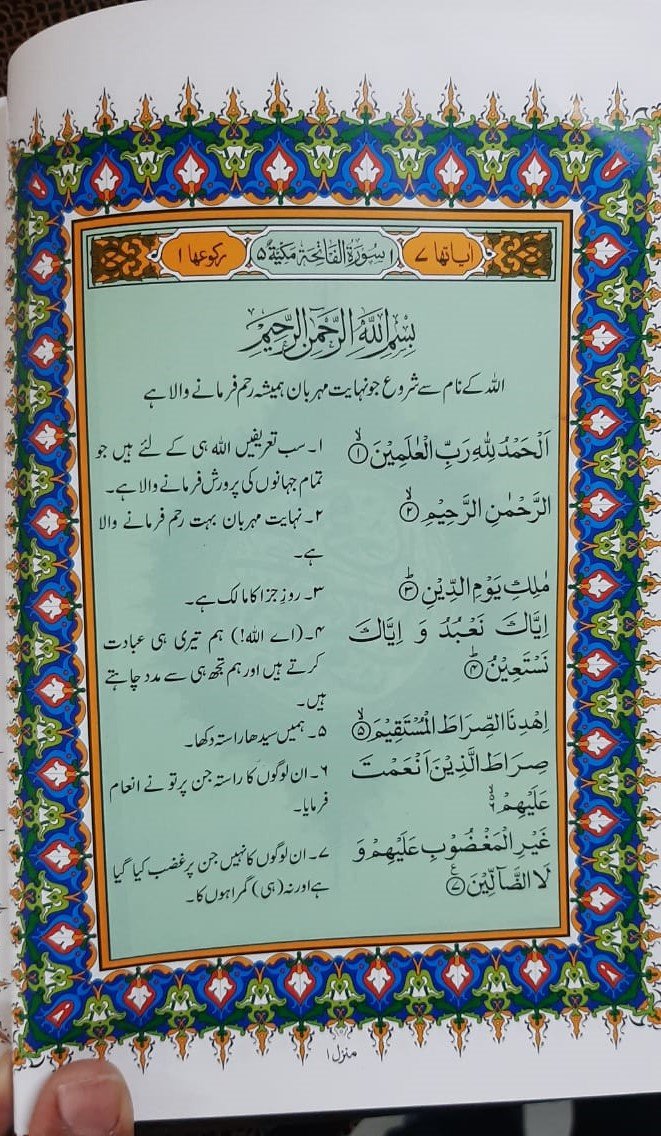 اٰیاتھا ۷
۱ سُوْرَةُ الْفَاتِحَةِ مَكِّيَّةٌ ۵
رکوعھا ۱
بِسْمِ اللّٰهِ الرَّحْمٰنِ الرَّحِيْمِ
اللہ کے نام سے شروع جو نہایت مہربان ہمیشہ رحم فرمانے والا ہے
اَلْحَمْدُ لِلّٰهِ رَبِّ الْعٰلَمِيْنَ ۙ﴿۱﴾
۱۔ سب تعریفیں اللہ ہی کے لئے ہیں جو
تمام جہانوں کی پرورش فرمانے والا ہے۔
الرَّحْمٰنِ الرَّحِيْمِ ۙ﴿۲﴾
۲۔ نہایت مہربان بہت رحم فرمانے والا
ہے۔
مٰلِكِ يَوْمِ الدِّيْنِ ؕ﴿۳﴾
۳۔ روزِ جزا کا مالک ہے۔
اِيَّاكَ نَعْبُدُ وَ اِيَّاكَ
نَسْتَعِيْنُ ؕ﴿۴﴾
۴۔ (اے اللہ!) ہم تیری ہی عبادت
کرتے ہیں اور ہم تجھ ہی سے مدد چاہتے
ہیں۔
اِهْدِنَا الصِّرَاطَ الْمُسْتَقِيْمَ ۙ﴿۵﴾
۵۔ ہمیں سیدھا راستہ دکھا۔
صِرَاطَ الَّذِيْنَ اَنْعَمْتَ
عَلَيْهِمْ ۙ۬۶
۶۔ ان لوگوں کا راستہ جن پر تو نے انعام
فرمایا۔
غَيْرِ الْمَغْضُوْبِ عَلَيْهِمْ وَ
لَا الضَّآلِّيْنَ ﴿۷﴾ ع
۷۔ ان لوگوں کا نہیں جن پر غضب کیا گیا
ہے اور نہ (ہی) گمراہوں کا۔
منزل ۱